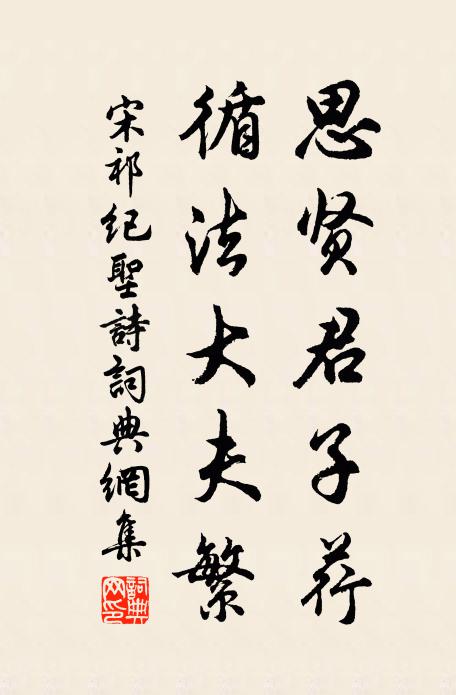 思贤君子荇
循法大夫繁
宋祁纪聖詩詞典網集
詞典网印